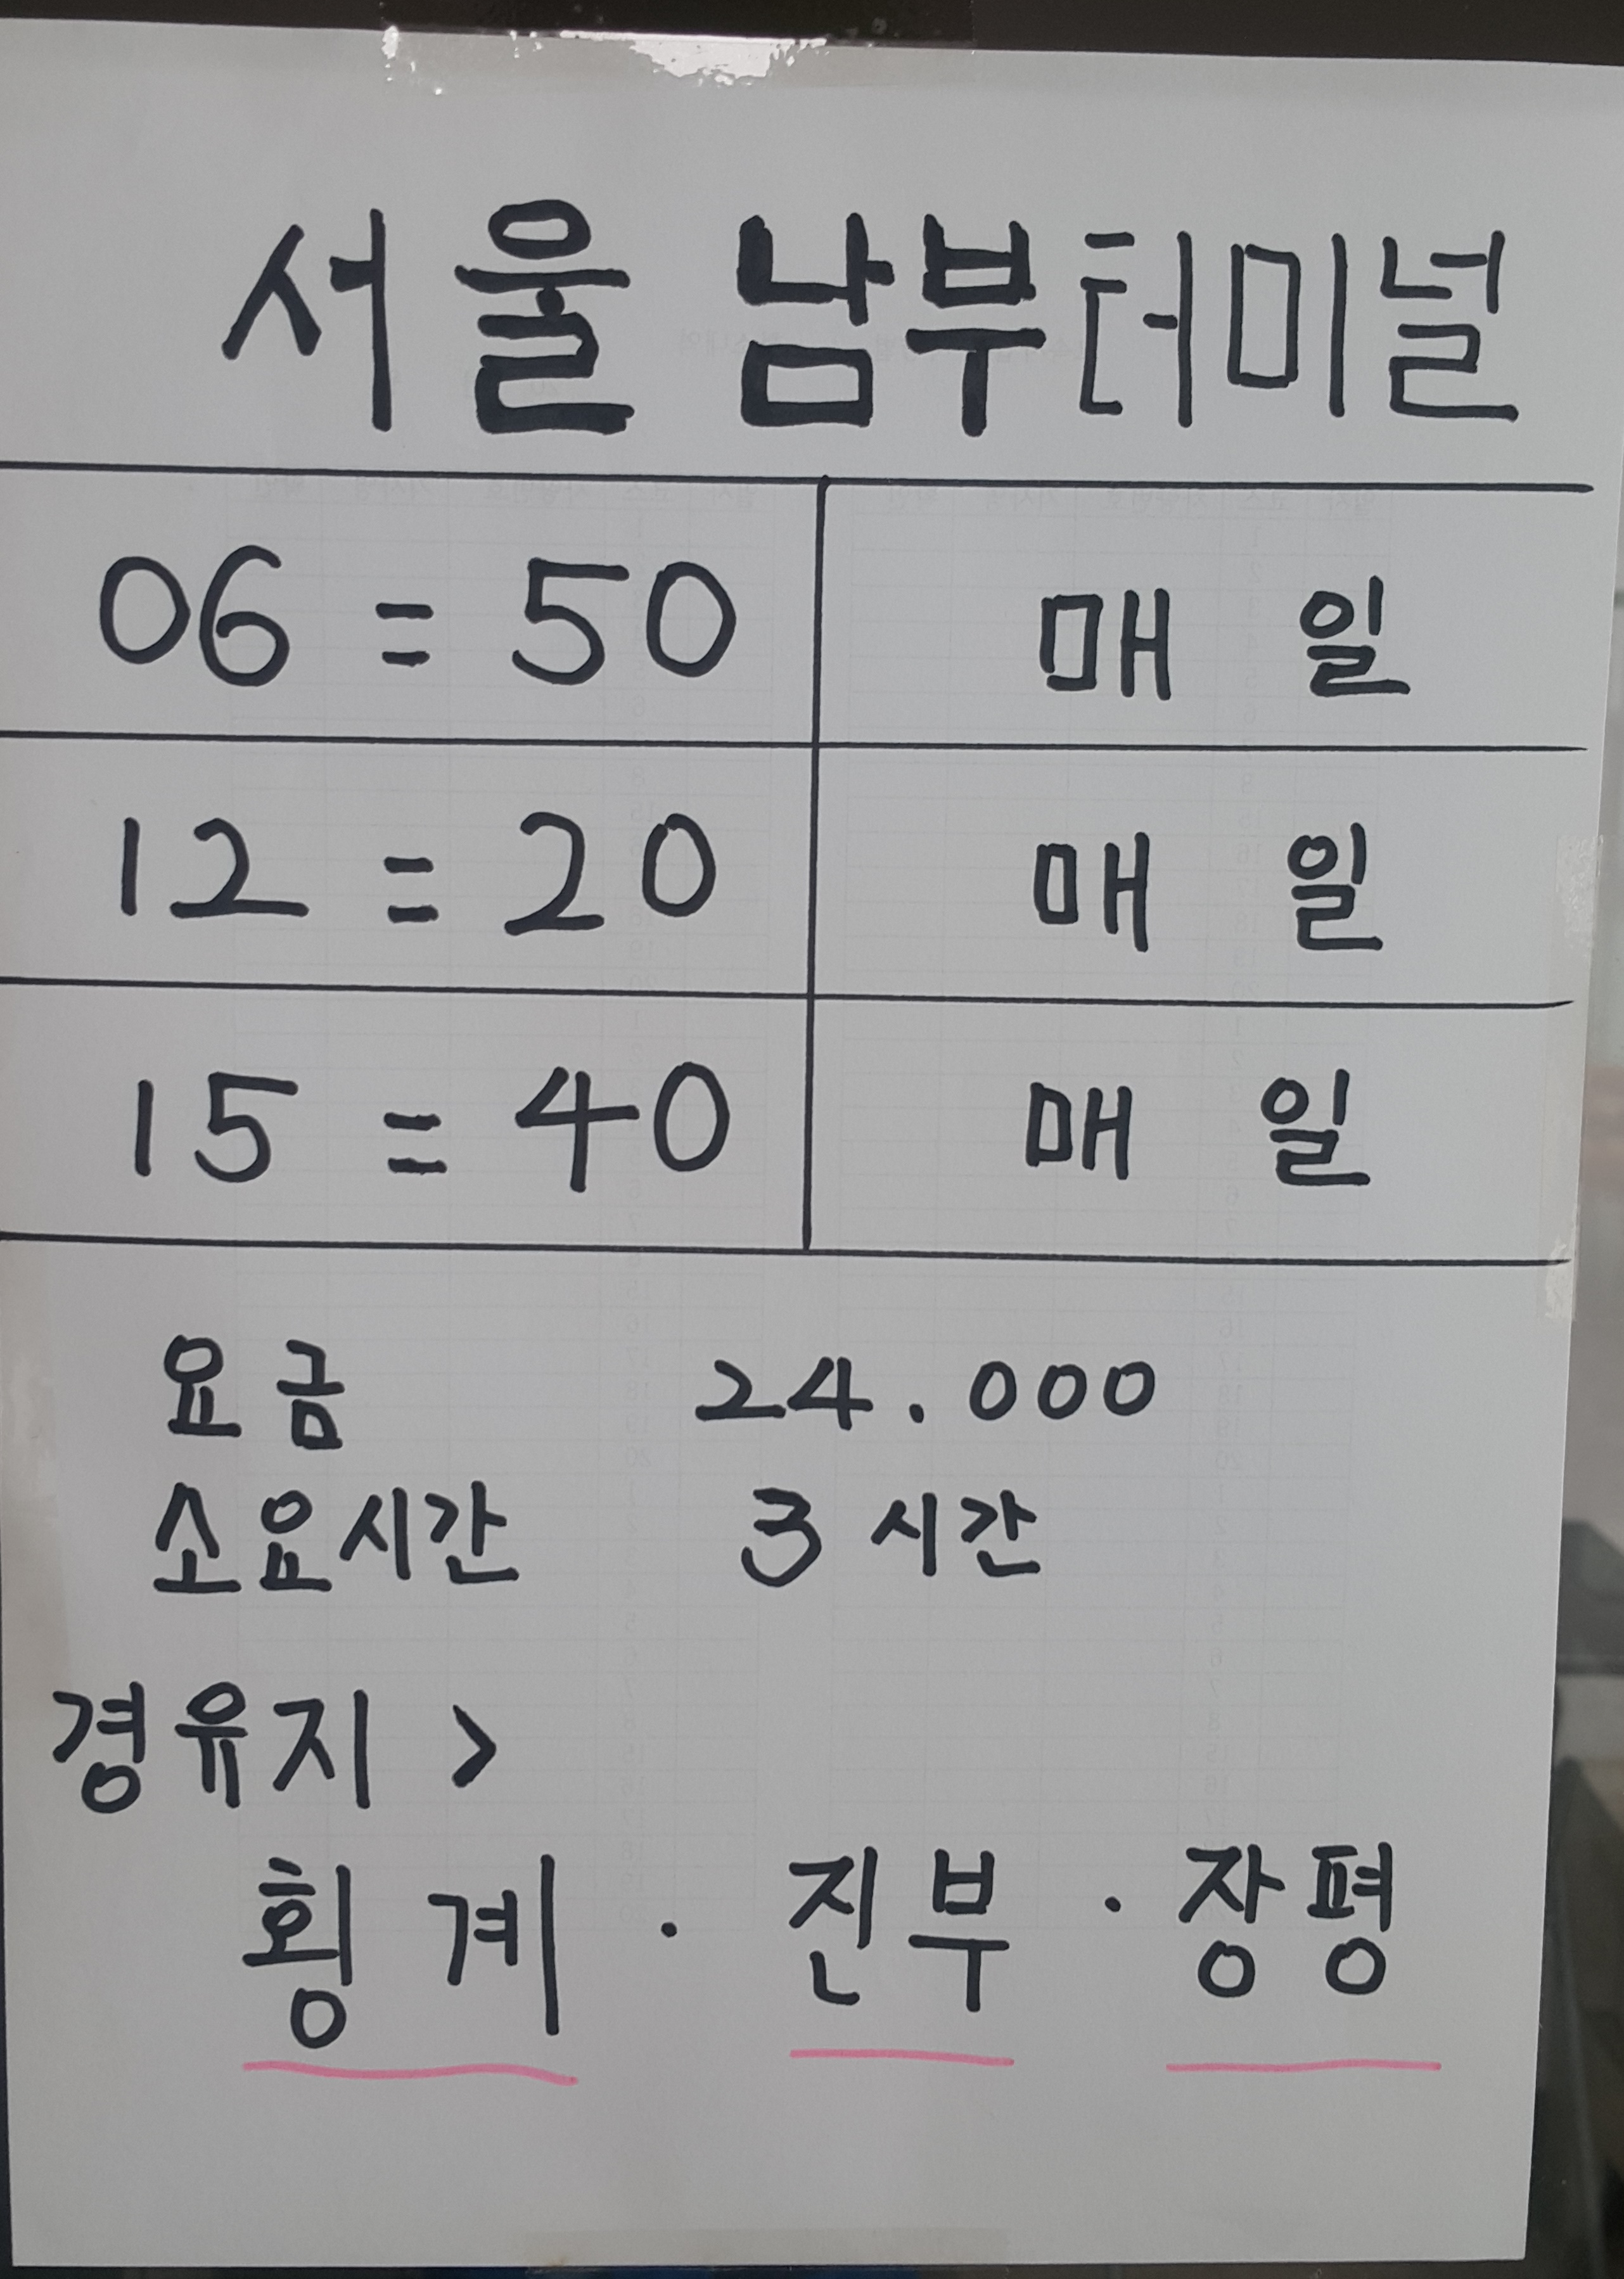 서울 남부터미널
06 = 50 매 일
12 = 20 매 일
15 = 40 매 일
요금 24.000
소요시간 3 시간
경유지 >
횡계 · 진부 · 장평